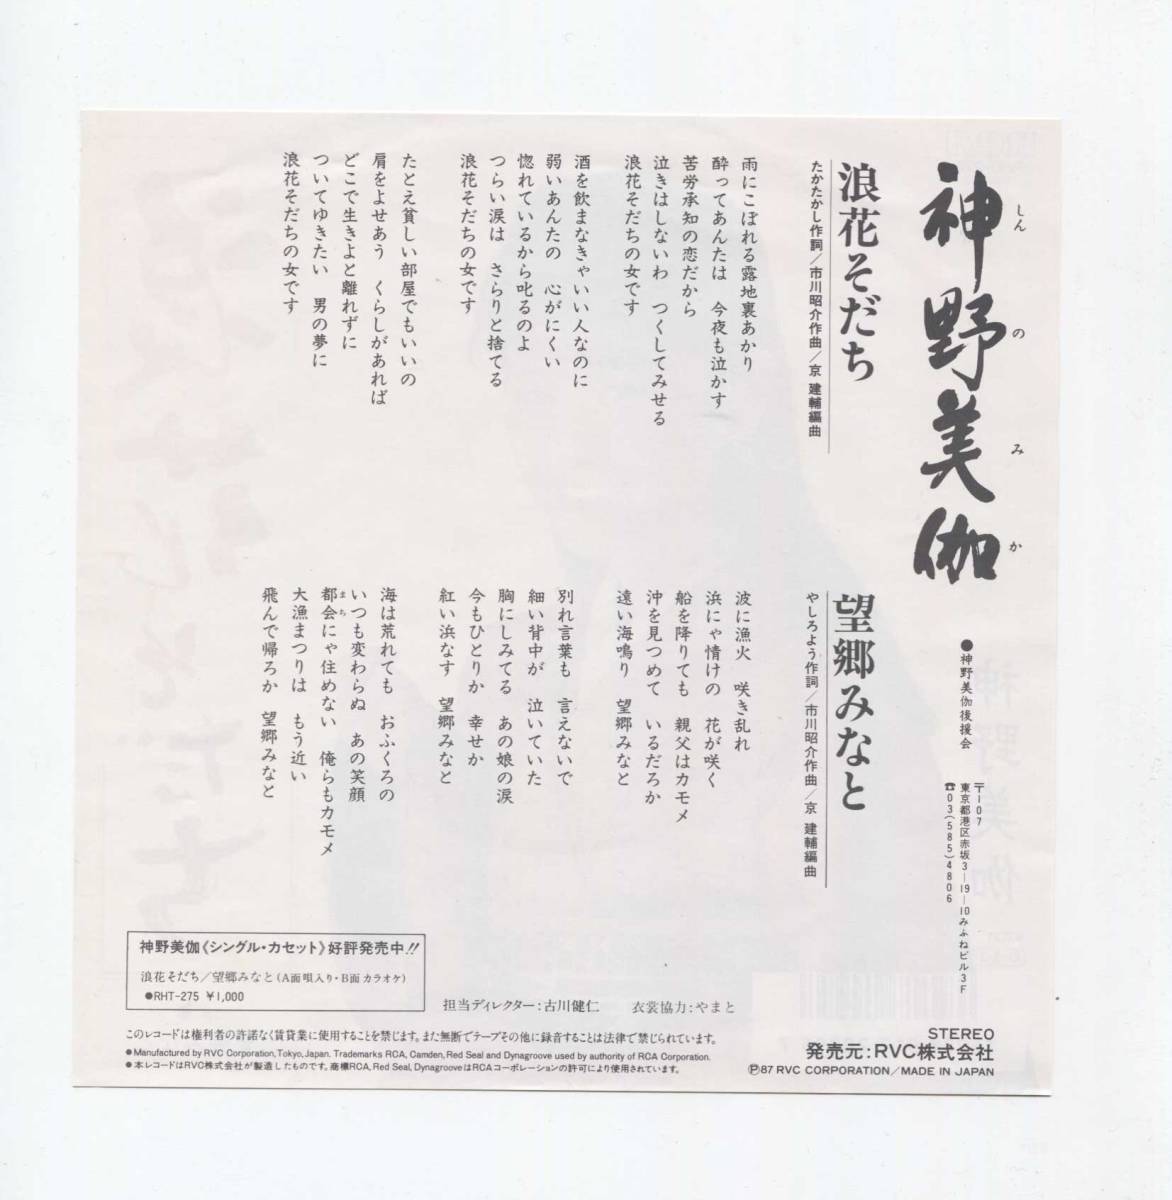 神野美伽
しんのみか
●神野美伽後援会
〒107
東京都港区赤坂3-19-10みふねビル3F
☎03(585)4806
浪花そだち
たかたかし作詞/市川昭介作曲/京 建輔編曲
雨にこぼれる露地裏あかり
酔ってあんたは 今夜も泣かす
苦労承知の恋だから
泣きはしないわ つくしてみせる
浪花そだちの女です
酒を飲まなきゃいい人なのに
弱いあんたの 心がにくい
惚れているから叱るのよ
つらい涙は さらりと捨てる
浪花そだちの女です
たとえ貧しい部屋でもいいの
肩をよせあう くらしがあれば
どこで生きよと離れずに
ついてゆきたい 男の夢に
浪花そだちの女です
望郷みなと
やしろよう作詞/市川昭介作曲/京 建輔編曲
波に漁火 咲き乱れ
浜にゃ情けの 花が咲く
船を降りても 親父はカモメ
沖を見つめて いるだろか
遠い海鳴り 望郷みなと
別れ言葉も 言えないで
細い背中が 泣いていた
胸にしみてる あの娘の涙
今もひとりか 幸せか
紅い浜なす 望郷みなと
海は荒れても おふくろの
いつも変わらぬ あの笑顔
都会にゃ住めない 俺らもカモメ
まち
大漁まつりは もう近い
飛んで帰ろか 望郷みなと
神野美伽《シングル・カセット》好評発売中!!
浪花そだち/望郷みなと(A面唄入り・B面カラオケ)
●RHT-275 ¥1,000
担当ディレクター:古川健仁 衣裳協力:やまと
このレコードは権利者の許諾なく賃貸業に使用することを禁じます。また無断でテープその他に録音することは法律で禁じられています。
●Manufactured by RVC Corporation, Tokyo, Japan. Trademarks RCA, Camden, Red Seal and Dynagroove used by authority of RCA Corporation.
●本レコードはRVC株式会社が製造したものです。商標RCA, Red Seal, DynagrooveはRCAコーポレーションの許可により使用されています。
STEREO
発売元:RVC株式会社
Ⓟ87 RVC CORPORATION/MADE IN JAPAN